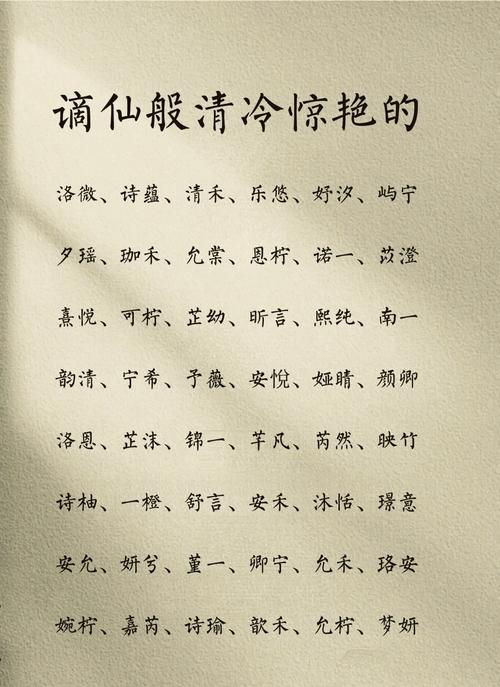 谪仙般清冷惊艳的
洛微、诗蕴、清禾、乐悠、妤汐、屿宁
夕瑶、珈禾、允棠、恩柠、诺一、苡澄
熹悦、可柠、芷幼、昕言、熙纯、南一
韵清、宁希、予薇、安悦、娅晴、颜卿
洛恩、芷沫、锦一、芊凡、芮然、映竹
诗柚、一橙、舒言、安禾、沐恬、璟意
安允、妍兮、堇一、卿宁、允禾、珞安
婉柠、嘉芮、诗瑜、歆禾、允柠、梦妍